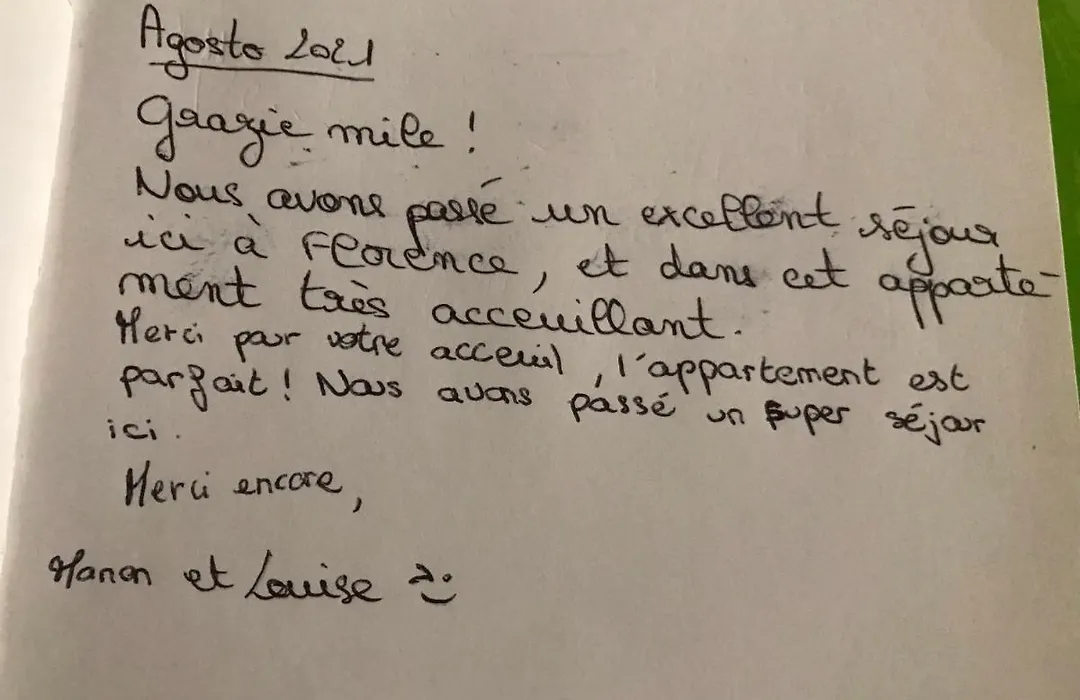 Agosto 2021
Grazie mile !
Nous avons passé un excellent séjour
ici à Florence, et dans cet apparte-
ment très acceuillant.
Merci pour votre acceuil, l'appartement est
parfait ! Nous avons passé un super séjour
ici.
Merci encore,
Manon et Louise